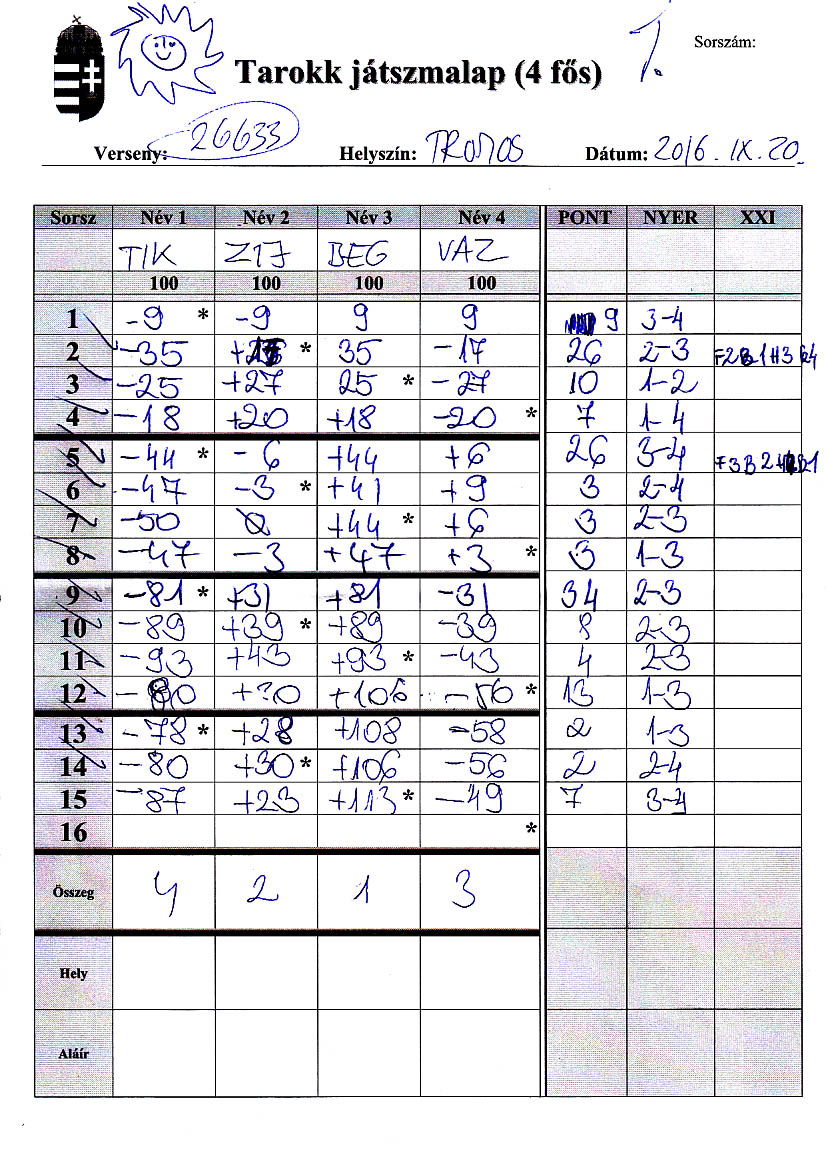 Sorszám:
1.
Tarokk játszmalap (4 fős)
Verseny: 26633 Helyszín: TROMOS Dátum: 2016. IX. 20.
Sorsz Név 1 Név 2 Név 3 Név 4 PONT NYER XXI
TIK ZIJ BEG VAZ
100 100 100 100
1 -9 * -9 9 9 9 3-4
2 -35 * 35 -17 26 2-3
3 -25 +27 25 * -27 10 1-2
4 -18 +20 +18 -20 * 7 1-4
5 -44 * -6 +44 +6 26 3-4
6 -47 -3 * +41 +9 3 2-4
7 -50 0 +44 * +6 3 2-3
8 -47 -3 +47 +3 * 3 1-3
9 -81 * +31 +81 -31 34 2-3
10 -89 +39 * +89 -39 8 2-3
11 -93 +43 +93 * -43 4 2-3
12 -80 +30 +106 -56 * 13 1-3
13 -78 * +28 +108 -58 2 1-3
14 -80 +30 * +106 -56 2 2-4
15 -87 +23 +113 * -49 7 3-4
16 *
Összeg 4 2 1 3
Hely
Aláír